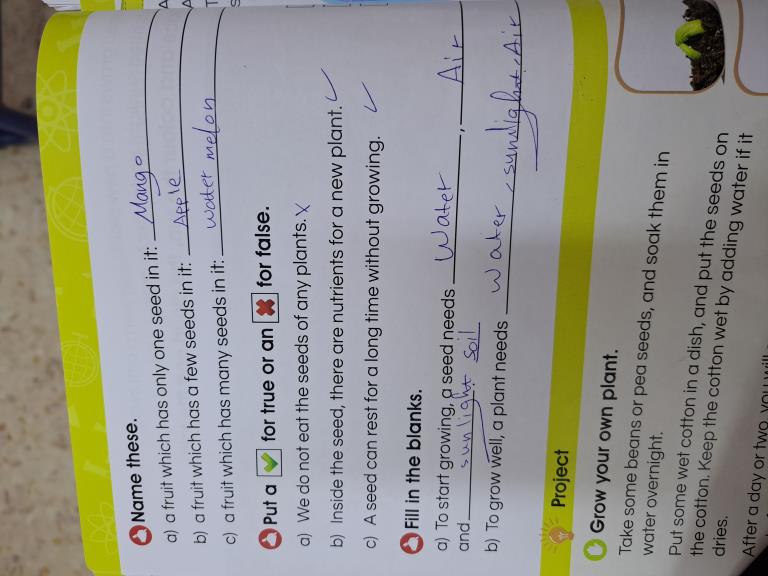 Name these.
a) a fruit which has only one seed in it: Mango
b) a fruit which has a few seeds in it: Apple
c) a fruit which has many seeds in it: water melon
Put a ✓ for true or an ✗ for false.
a) We do not eat the seeds of any plants. X
b) Inside the seed, there are nutrients for a new plant. ✓
c) A seed can rest for a long time without growing. ✓
Fill in the blanks.
a) To start growing, a seed needs Water, Air
and sunlight. soil
b) To grow well, a plant needs water, sunlight, Air
Project
Grow your own plant.
Take some beans or pea seeds, and soak them in
water overnight.
Put some wet cotton in a dish, and put the seeds on
the cotton. Keep the cotton wet by adding water if it
dries.
After a day or two, you will